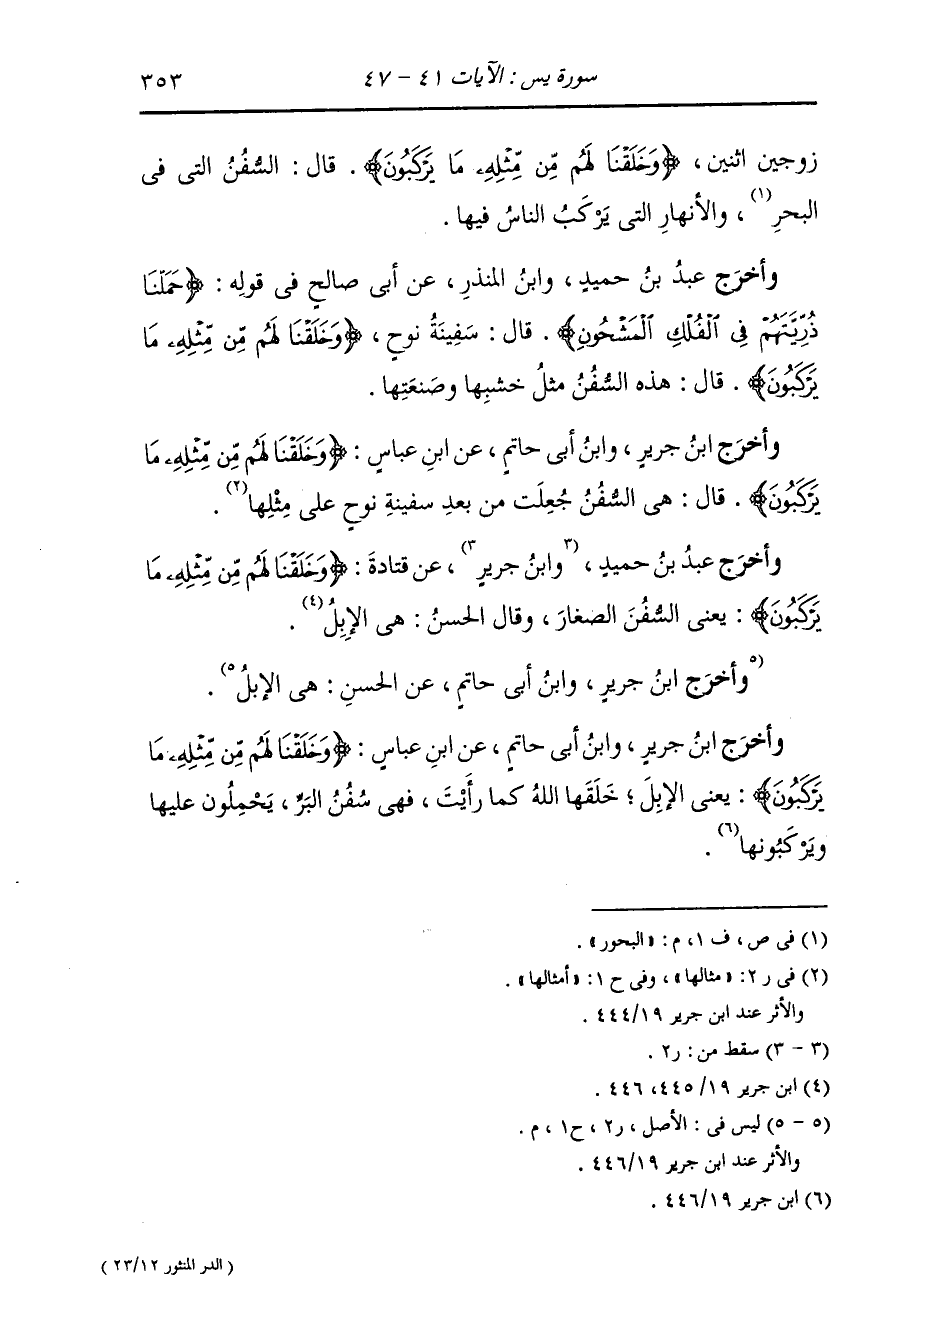 سورة يس : الآيات ٤١ - ٤٧ ٣٥٣
زوجين اثنين ، ﴿وَخَلَقْنَا لَهُم مِّن مِّثْلِهِۦ مَا يَرْكَبُونَ﴾ . قال : السُّفُنُ التى فى
البحرِ(١) ، والأنهارِ التى يَرْكَبُ الناسُ فيها .
وأخرَج عبدُ بنُ حميدٍ ، وابنُ المنذرِ ، عن أبى صالحٍ فى قولِه : ﴿حَمَلْنَا
ذُرِّيَّتَهُمْ فِى ٱلْفُلْكِ ٱلْمَشْحُونِ﴾ . قال : سَفِينَةُ نوحٍ ، ﴿وَخَلَقْنَا لَهُم مِّن مِّثْلِهِۦ مَا
يَرْكَبُونَ﴾ . قال : هذه السُّفُنُ مثلُ خشبِها وصَنعَتِها .
وأخرَج ابنُ جريرٍ ، وابنُ أبى حاتمٍ ، عن ابنِ عباسٍ : ﴿وَخَلَقْنَا لَهُم مِّن مِّثْلِهِۦ مَا
يَرْكَبُونَ﴾ . قال : هى السُّفُنُ جُعِلَت من بعدِ سفينةِ نوحٍ على مِثْلِها(٢) .
وأخرَج عبدُ بنُ حميدٍ ، (٣وابنُ جريرٍ٣) ، عن قتادةَ : ﴿وَخَلَقْنَا لَهُم مِّن مِّثْلِهِۦ مَا
يَرْكَبُونَ﴾ : يعنى السُّفُنَ الصغارَ ، وقال الحسنُ : هى الإِبِلُ(٤) .
(٥وأخرَج ابنُ جريرٍ ، وابنُ أبى حاتمٍ ، عن الحسنِ : هى الإبلُ٥) .
وأخرَج ابنُ جريرٍ ، وابنُ أبى حاتمٍ ، عن ابنِ عباسٍ : ﴿وَخَلَقْنَا لَهُم مِّن مِّثْلِهِۦ مَا
يَرْكَبُونَ﴾ : يعنى الإبلَ ؛ خَلَقَها اللهُ كما رأَيْتَ ، فهى سُفُنُ البَرِّ ، يَحْمِلُون عليها
ويَرْكَبُونها(٦) .
(١) فى ص ، ف ١، م : «البحور» .
(٢) فى ر ٢: «مثالها» ، وفى ح ١: «أمثالها» .
والأثر عند ابن جرير ١٩/ ٤٤٤ .
(٣ - ٣) سقط من : ر٢ .
(٤) ابن جرير ١٩/ ٤٤٥، ٤٤٦ .
(٥ - ٥) ليس فى : الأصل ، ر٢ ، ح١ ، م .
والأثر عند ابن جرير ١٩/ ٤٤٦ .
(٦) ابن جرير ١٩/ ٤٤٦ .
( الدر المنثور ١٢/ ٢٣ )